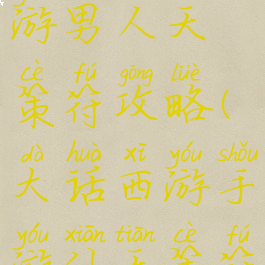 游男人天
cè fú gōng lüè
策符攻略(
dà huà xī yóu shǒu
大话西游手
yóu xiān tiān cè fú